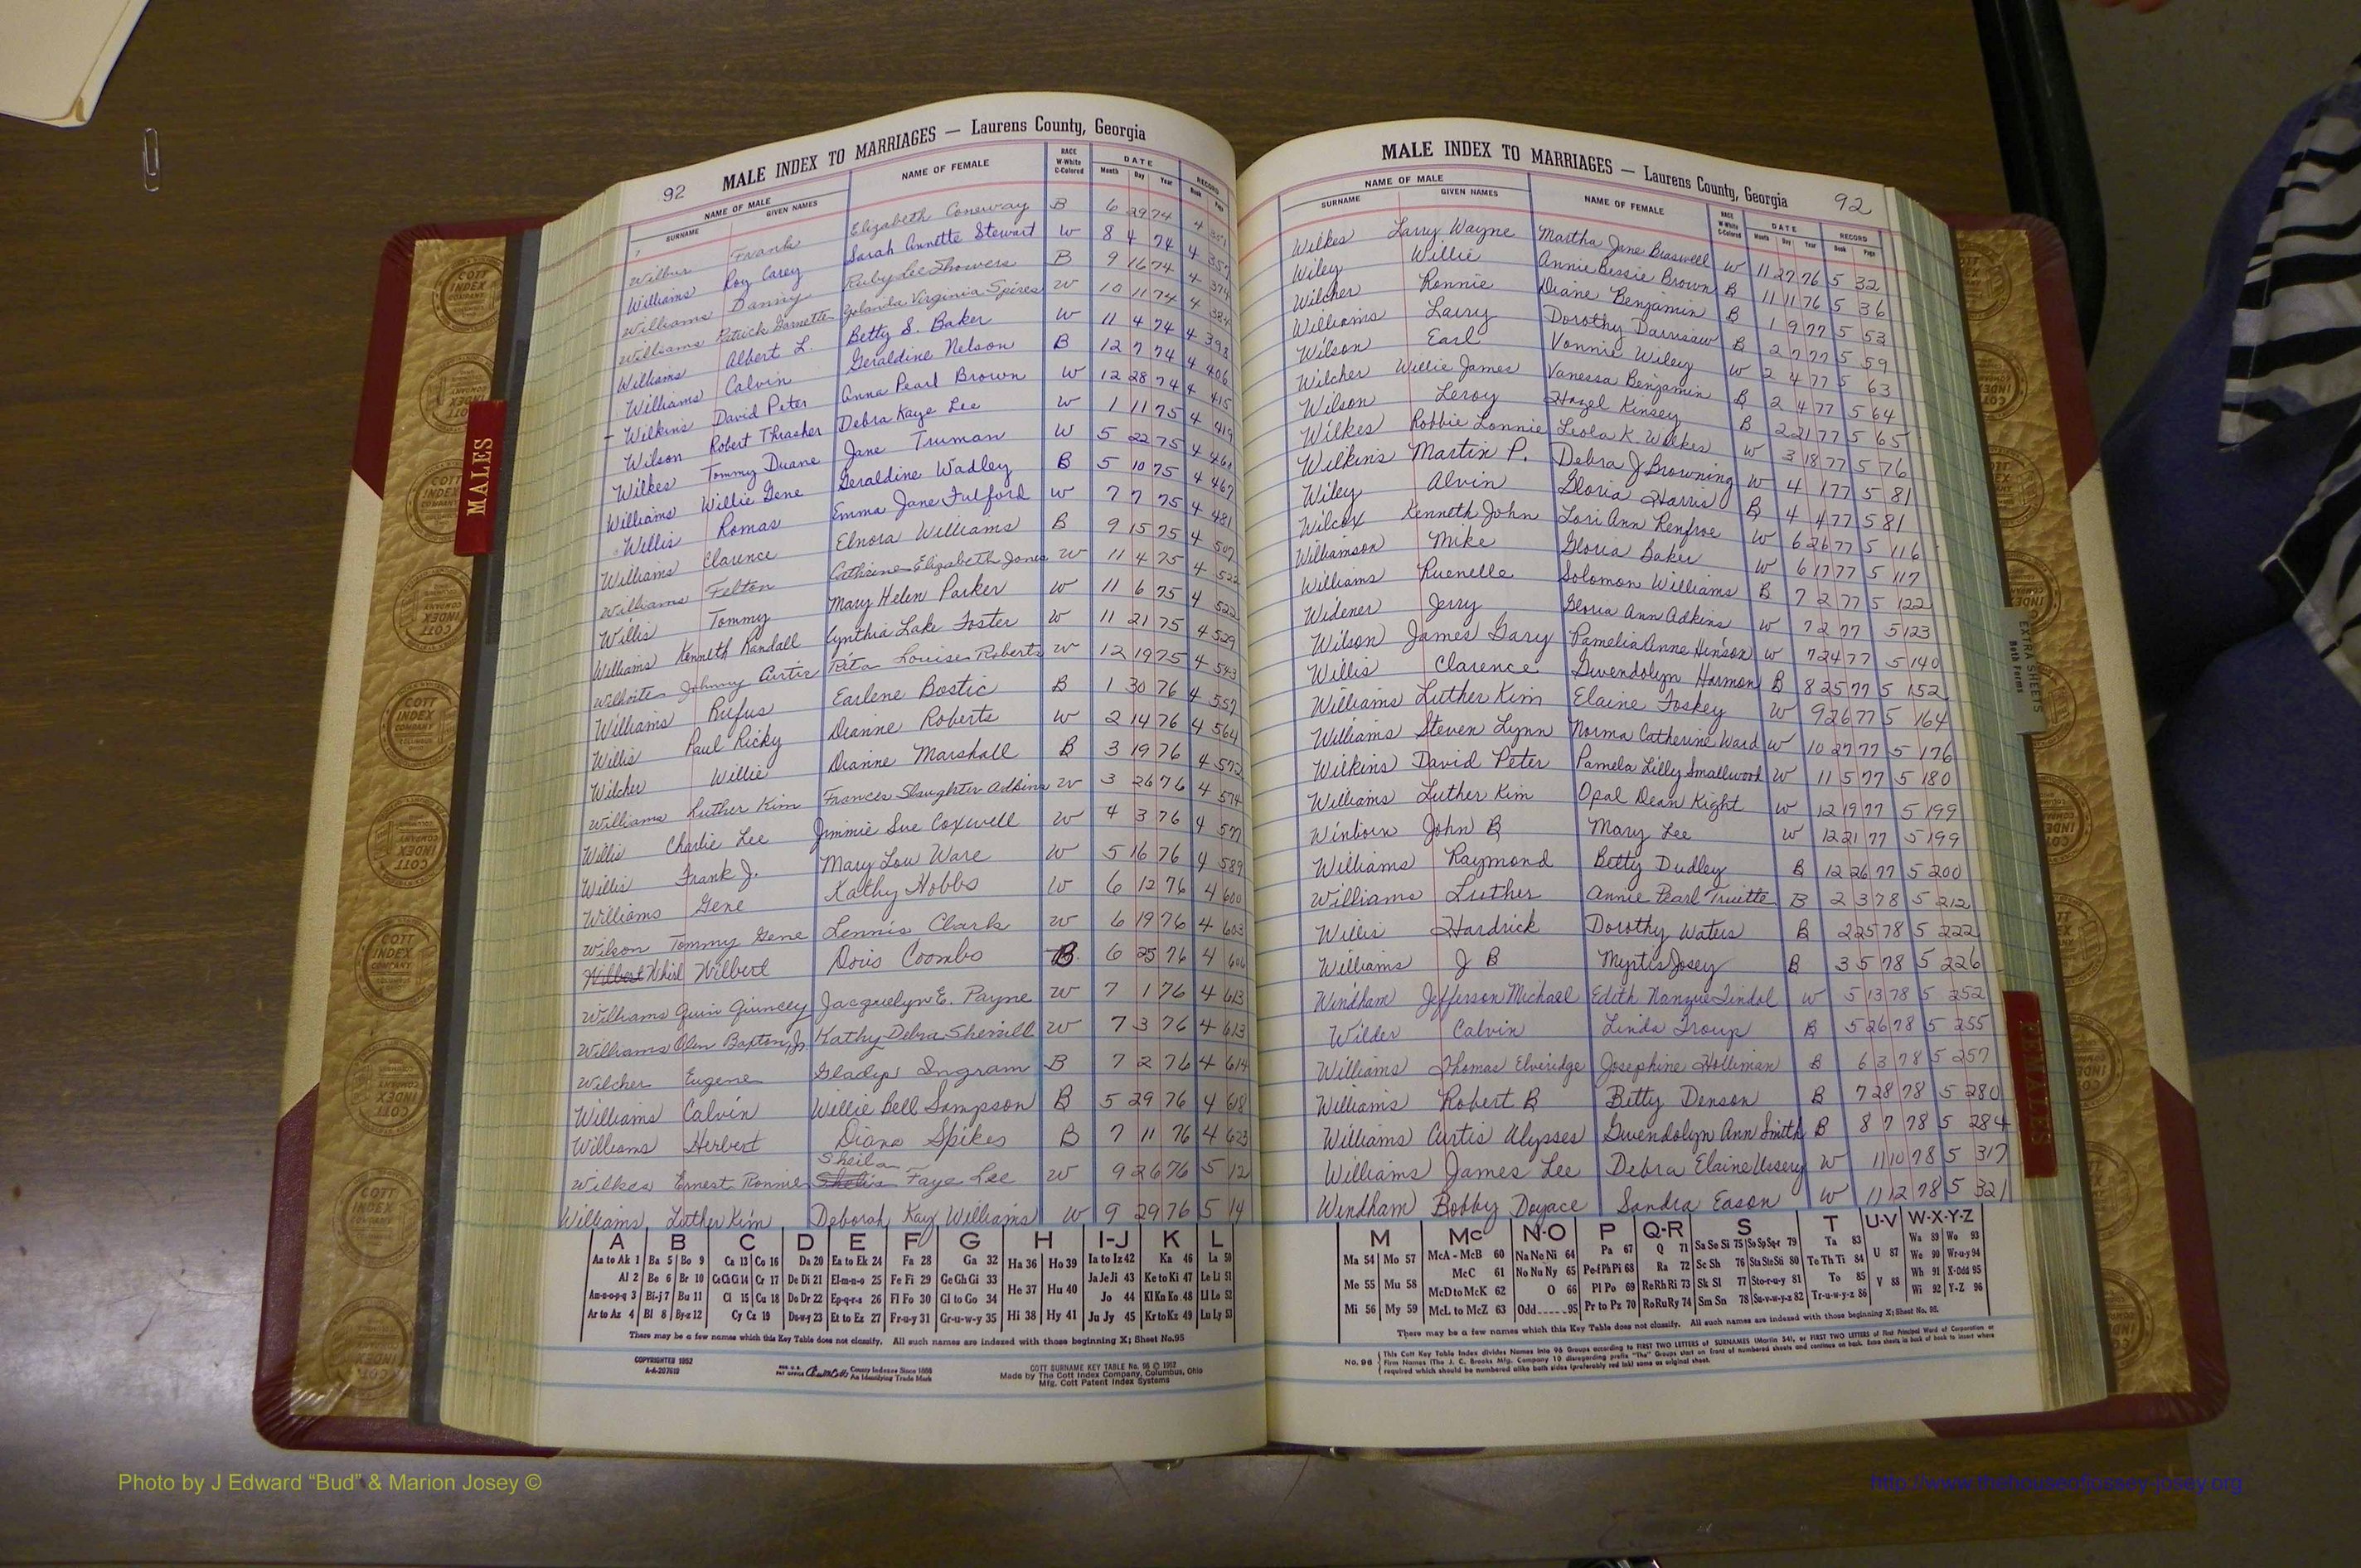 92 MALE INDEX TO MARRIAGES — Laurens County, Georgia
NAME OF MALE NAME OF FEMALE RACE DATE RECORD
SURNAME GIVEN NAMES W-White C-Colored Month Day Year Book Page
Wilbur Frank Elizabeth Coneway B 6 29 74 4
Williams Roy Carey Sarah Annette Stewart W 8 4 74 4 357
Williams Danny Ruby Lee Showers B 9 16 74 4 374
Williams Patrick Garnette Yolanda Virginia Spires W 10 11 74 4 384
Williams Albert L. Betty S. Baker W 11 4 74 4 398
Williams Calvin Geraldine Nelson B 12 7 74 4 406
Wilkins David Peter Anna Pearl Brown W 12 28 74 4 415
Wilson Robert Thrasher Debra Kaye Lee W 1 11 75 4 419
Wilkes Tommy Duane Jane Truman W 5 22 75 4
Williams Willie Gene Geraldine Wadley B 5 10 75 4 467
Willis Romas Emma Jane Fulford W 7 7 75 4 481
Williams Clarence Elnora Williams B 9 15 75 4 507
Williams Felton Cathrine Elizabeth Jones W 11 4 75 4 522
Willis Tommy Mary Helen Parker W 11 6 75 4 522
Williams Kenneth Randall Cynthia Lake Foster W 11 21 75 4 529
Wilhoite Johnny Curtis Rita Louise Roberts W 12 19 75 4 543
Williams Rufus Earlene Bostic B 1 30 76 4 557
Willis Paul Ricky Dianne Roberts W 2 14 76 4 564
Wilcher Willie Dianne Marshall B 3 19 76 4 572
Williams Luther Kim Frances Slaughter Adkins W 3 26 76 4 574
Willis Charlie Lee Jimmie Sue Coxwell W 4 3 76 4 577
Willis Frank J. Mary Lou Ware W 5 16 76 4 589
Williams Gene Kathy Hobbs W 6 12 76 4 600
Wilson Tommy Gene Lennis Clark W 6 19 76 4 603
Wilbert Whirl Wilbert Doris Coombs B 6 25 76 4 606
Williams Quin Quincey Jacquelyn E. Payne W 7 1 76 4 613
Williams Olen Baxton, Jr. Kathy Debra Sherrill W 7 3 76 4 613
Wilcher Eugene Gladys Ingram B 7 2 76 4 614
Williams Calvin Willie Bell Sampson B 5 29 76 4 618
Williams Herbert Diana Spikes B 7 11 76 4 623
Sheila
Wilkes Ernest Ronnie Faye Lee W 9 26 76 5 12
Williams Luther Kim Deborah Kay Williams W 9 29 76 5 14
A B C D E F G H I-J K L
Aa to Ak 1 Ba 5 Bo 9 Ca 13 Co 16 Da 20 Ea to Ek 24 Fa 28 Ga 32 Ha 36 Ho 39 Ia to Iz 42 Ka 46 La 50
Al 2 Be 6 Br 10 Ce Ch Ci 14 Cr 17 De Di 21 El-m-n-o 25 Fe Fi 29 Ge Gh Gi 33 He 37 Hu 40 Ja Je Ji 43 Ke to Ki 47 Le Li 51
Am-n-o-p-q 3 Bi-j 7 Bu 11 Cl 15 Cu 18 Do Dr 22 Ep-q-r-s 26 Fl Fo 30 Gl to Go 34 Jo 44 Kl Kn Ko 48 Ll Lo 52
Ar to Az 4 Bl 8 By-z 12 Cy Cz 19 Du-w-y 23 Et to Ez 27 Fr-u-y 31 Gr-u-w-y 35 Hi 38 Hy 41 Ju Jy 45 Kr to Kz 49 Lu Ly 53
There may be a few names which this Key Table does not classify. All such names are indexed with those beginning X; Sheet No. 95
COPYRIGHTED 1952
A-A-207610
County Indexes Since 1888
An Identifying Trade Mark
COTT SURNAME KEY TABLE No. 96 © 1952
Made by The Cott Index Company, Columbus, Ohio
Mfg. Cott Patent Index Systems
MALE INDEX TO MARRIAGES — Laurens County, Georgia 92
NAME OF MALE NAME OF FEMALE RACE DATE RECORD
SURNAME GIVEN NAMES W-White C-Colored Month Day Year Book Page
Wilkes Larry Wayne Martha Jane Braswell W 11 27 76 5 32
Wiley Willie Annie Bessie Brown B 11 11 76 5 36
Wilcher Ronnie Diane Benjamin B 1 9 77 5 53
Williams Larry Dorothy Darrisaw B 2 7 77 5 59
Wilson Earl Vonnie Wiley W 2 4 77 5 63
Wilcher Willie James Vanessa Benjamin B 2 4 77 5 64
Wilson Leroy Hazel Kinsey B 2 21 77 5 65
Wilkes Robbie Lonnie Leola K. Wilkes W 3 18 77 5 76
Wilkins Martin P. Debra J Browning W 4 1 77 5 81
Wiley Alvin Gloria Harris B 4 4 77 5 81
Wilcox Kenneth John Lori Ann Renfroe W 6 26 77 5 116
Williamson Mike Gloria Baker W 6 17 77 5 117
Williams Ruenelle Solomon Williams B 7 2 77 5 122
Widener Jerry Gloria Ann Adkins W 7 2 77 5 123
Wilson James Gary Pamelia Anne Hinson W 7 24 77 5 140
Willis Clarence Gwendolyn Harmon B 8 25 77 5 152
Williams Luther Kim Elaine Foskey W 9 26 77 5 164
Williams Steven Lynn Norma Catherine Ward W 10 27 77 5 176
Wilkins David Peter Pamela Lilly Smallwood W 11 5 77 5 180
Williams Luther Kim Opal Dean Kight W 12 19 77 5 199
Winborn John B Mary Lee W 12 21 77 5 199
Williams Raymond Betty Dudley B 12 26 77 5 200
Williams Luther Annie Pearl Truette B 2 3 78 5 212
Willis Hardrick Dorothy Waters B 2 25 78 5 222
Williams J B Myrtis Josey B 3 5 78 5 226
Windham Jefferson Michael Edith Nanzue Lindol W 5 13 78 5 252
Wilder Calvin Linda Troup B 5 26 78 5 255
Williams Thomas Elveridge Josephine Holliman B 6 3 78 5 257
Williams Robert B Betty Denson B 7 28 78 5 280
Williams Curtis Ulysses Gwendolyn Ann Smith B 8 7 78 5 284
Williams James Lee Debra Elaine Ussery W 11 10 78 5 317
Windham Bobby Doyace Sandra Eason W 11 12 78 5 321
M Mc N-O P Q-R S T U-V W-X-Y-Z
Ma 54 Mo 57 McA - McB 60 Na Ne Ni 64 Pa 67 Q 71 Sa Se Si 75 So Sp Sq-r 79 Ta 83 U 87 Wa 89 Wo 93
Me 55 Mu 58 McC 61 No Nu Ny 65 Pe-f Ph Pi 68 Ra 72 Sc Sh 76 Sta Ste Sti 80 Te Th Ti 84 We 90 Wr-u-y 94
McD to McK 62 O 66 Pl Po 69 Re Rh Ri 73 Sk Sl 77 Sto-r-u-y 81 To 85 V 88 Wh 91 X-Odd 95
Mi 56 My 59 McL to McZ 63 Odd 95 Pr to Pz 70 Ro Ru Ry 74 Sm Sn 78 Su-v-w-y-z 82 Tr-u-w-y-z 86 Wi 92 Y-Z 96
There may be a few names which this Key Table does not classify. All such names are indexed with those beginning X; Sheet No. 95.
No. 96 This Cott Key Table Index divides Names into 96 Groups according to FIRST TWO LETTERS of SURNAMES (Martin 54), or FIRST TWO LETTERS of First Principal Word of Corporation or
Firm Names (The J. C. Brooks Mfg. Company 10 disregarding prefix "The" Groups start on front of numbered sheets and continue on back. Extra sheets in back of book to insert where
required which should be numbered alike both sides (preferably red ink) same as original sheet.
MALES
EXTRA SHEETS
Both Forms
FEMALES
COTT INDEX COMPANY
Photo by J Edward “Bud” & Marion Josey ©
http://www.thehouseofjossey-josey.org